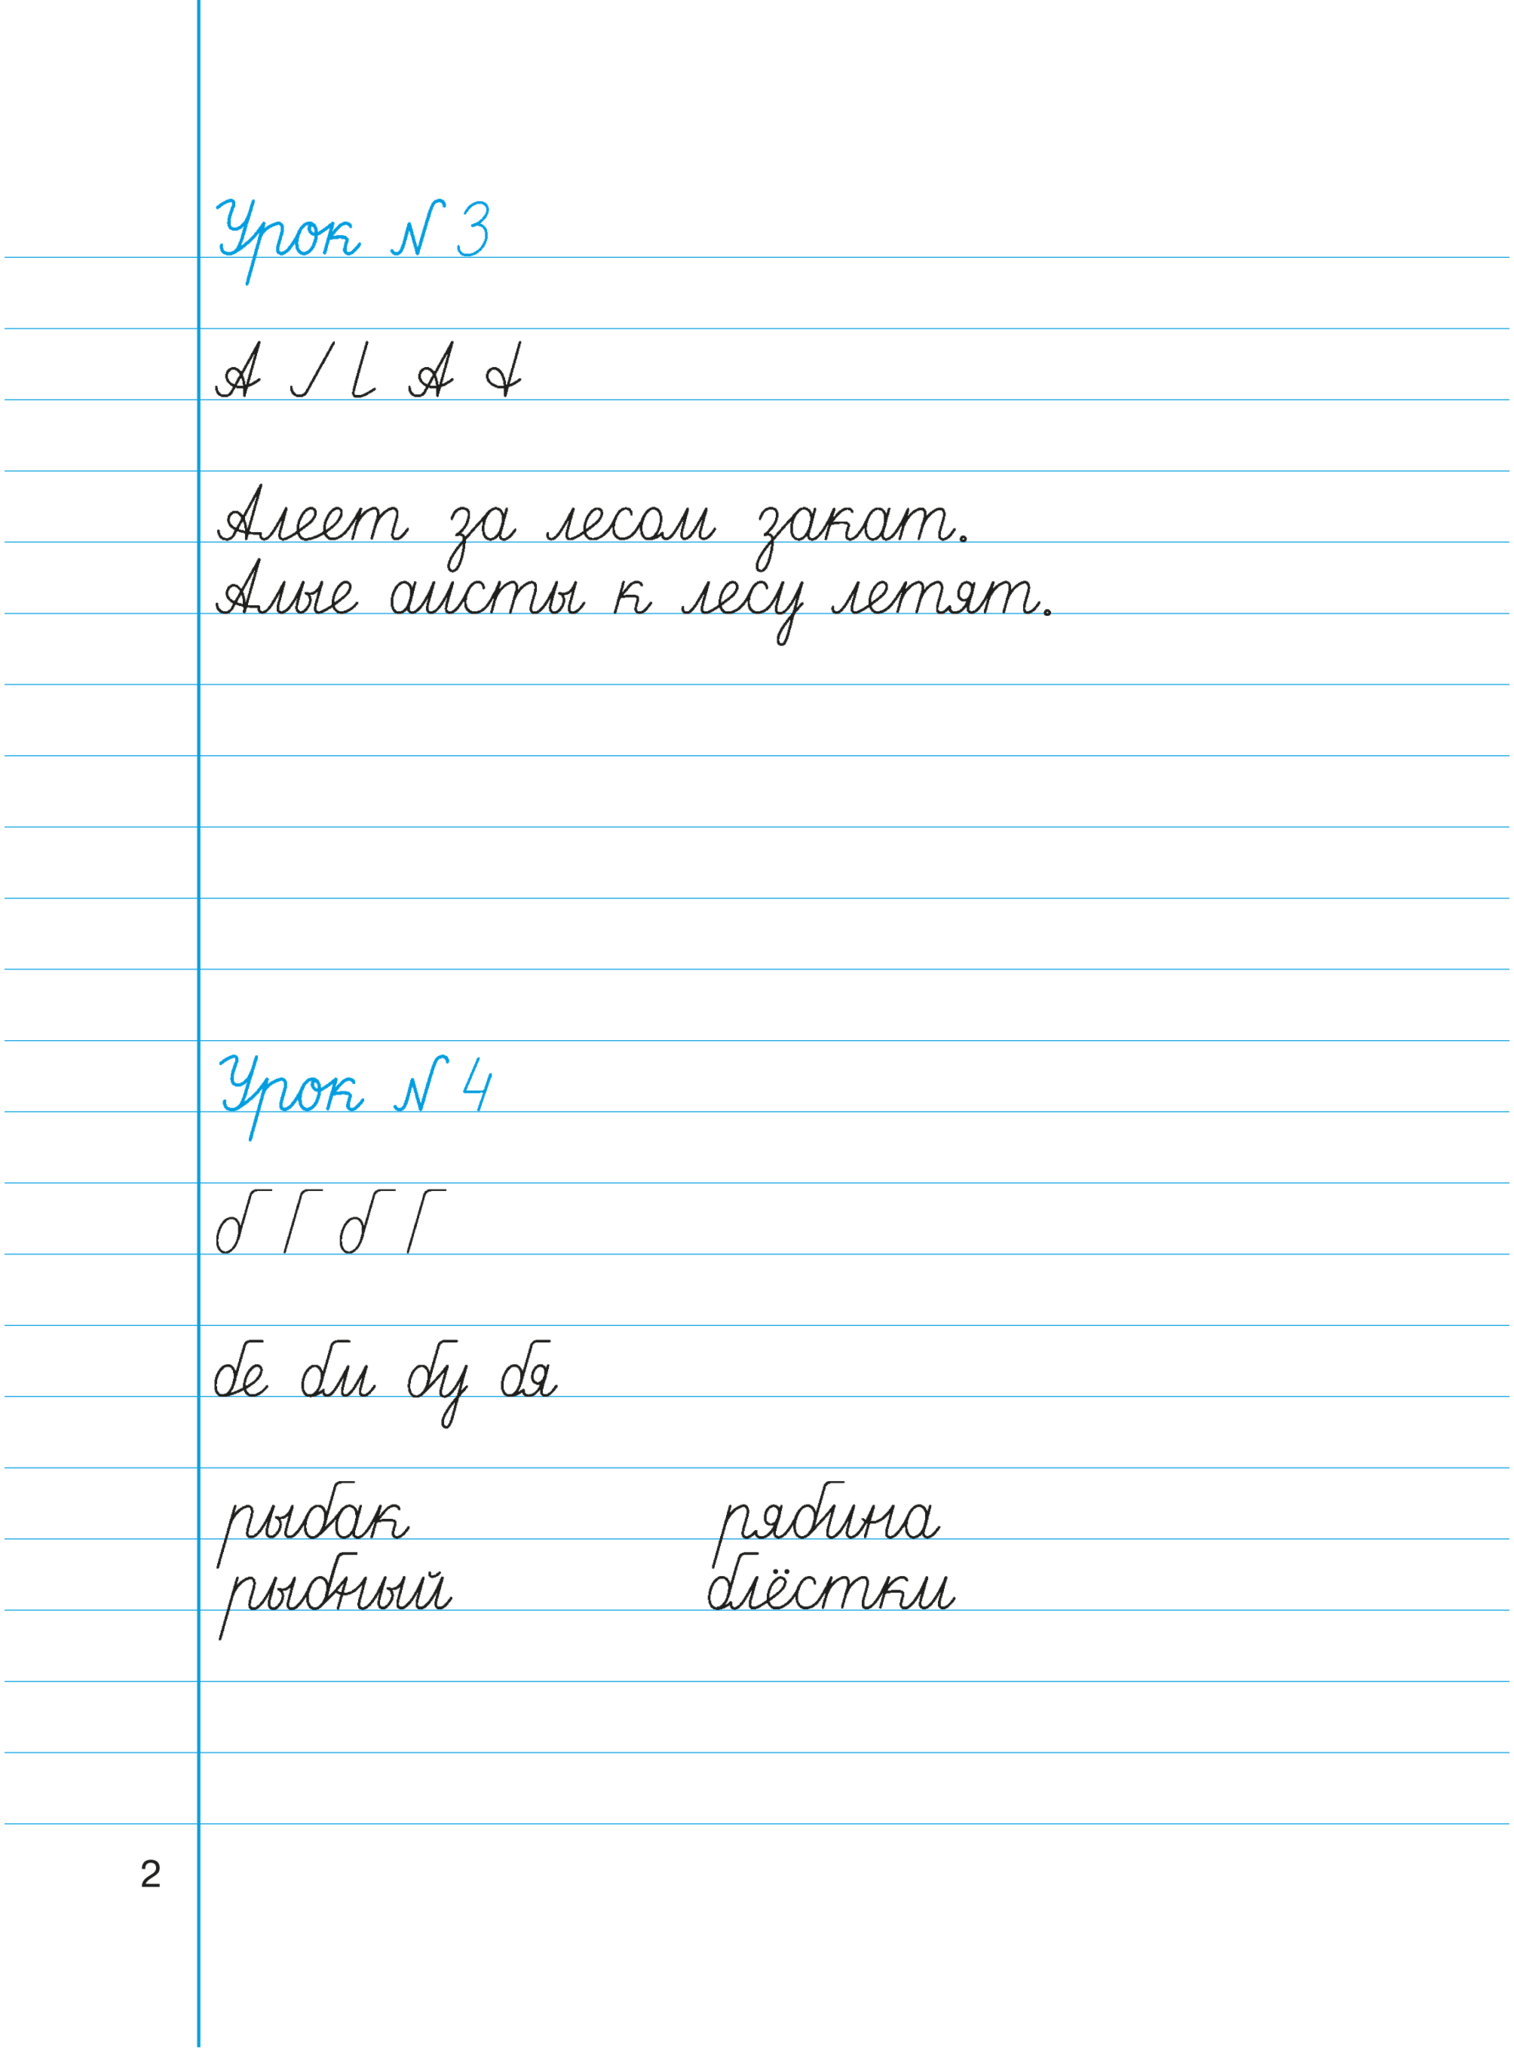 Урок N 3
А А
Алеет за лесом закат.
Алые аисты к лесу летят.
Урок N 4
б б
бе би бу бя
рыбак рябина
рыбный блёстки
2